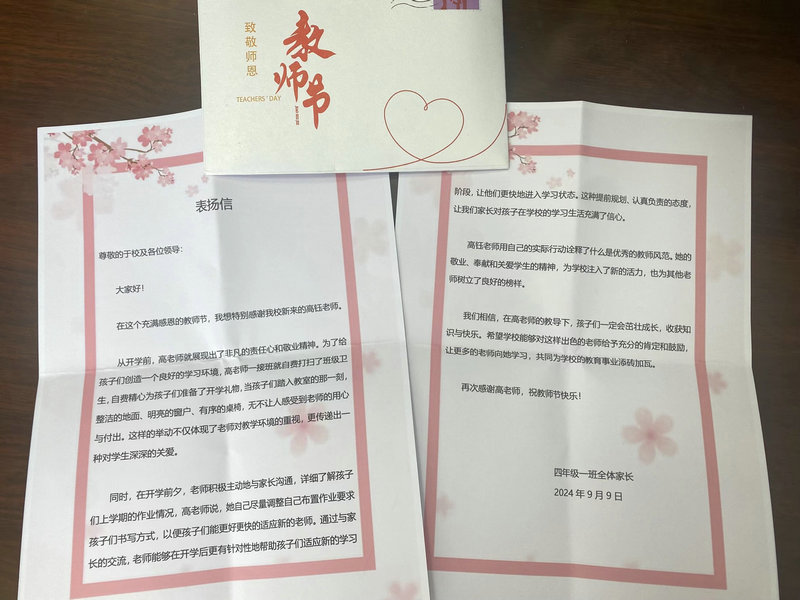 致敬师恩
教师节
TEACHERS' DAY
表扬信
尊敬的于校及各位领导：
大家好！
在这个充满感恩的教师节，我想特别感谢我校新来的高钰老师。
从开学前，高老师就展现出了非凡的责任心和敬业精神。为了给
孩子们创造一个良好的学习环境，高老师一接班就自费打扫了班级卫
生，自费精心为孩子们准备了开学礼物，当孩子们踏入教室的那一刻，
整洁的地面、明亮的窗户、有序的桌椅，无不让人感受到老师的用心
与付出。这样的举动不仅体现了老师对教学环境的重视，更传递出一
种对学生深深的关爱。
同时，在开学前夕，老师积极主动地与家长沟通，详细了解孩子
们上学期的作业情况，高老师说，她自己尽量调整自己布置作业要求
们书写方式，以便孩子们能更好更快的适应新的老师。通过与家
长的交流，老师能够在开学后更有针对性地帮助孩子们适应新的学习
阶段，让他们更快地进入学习状态。这种提前规划、认真负责的态度，
让我们家长对孩子在学校的学习生活充满了信心。
高钰老师用自己的实际行动诠释了什么是优秀的教师风范。她的
敬业、奉献和关爱学生的精神，为学校注入了新的活力，也为其他老
师树立了良好的榜样。
我们相信，在高老师的教导下，孩子们一定会茁壮成长，收获知
识与快乐。希望学校能够对这样出色的老师给予充分的肯定和鼓励，
让更多的老师向她学习，共同为学校的教育事业添砖加瓦。
再次感谢高老师，祝教师节快乐！
四年级一班全体家长
2024 年 9 月 9 日